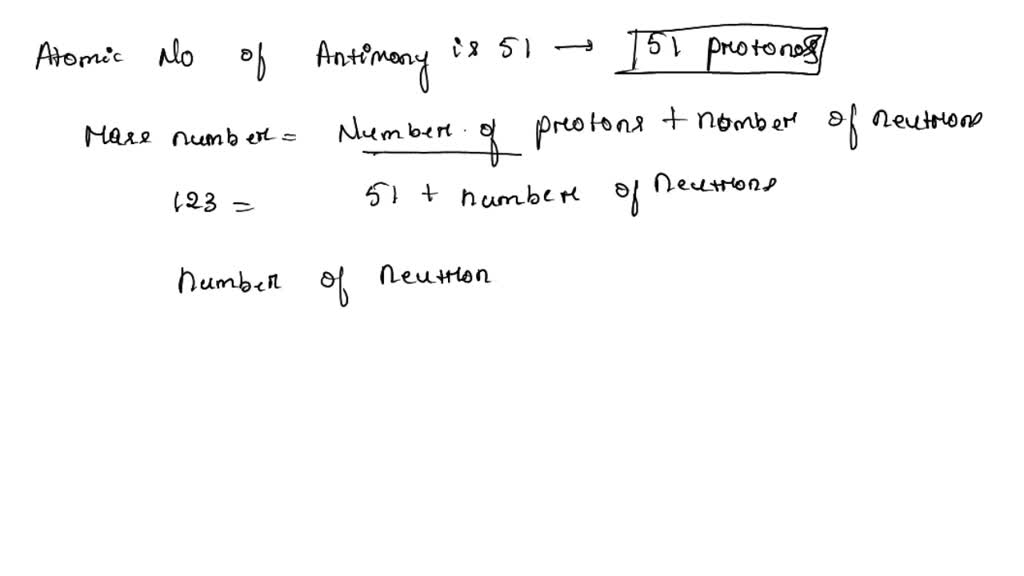 Atomic No of Antimony is 51 → 51 protons
Mass number = Number of protons + number of neutrons
123 = 51 + number of neutrons
number of neutron